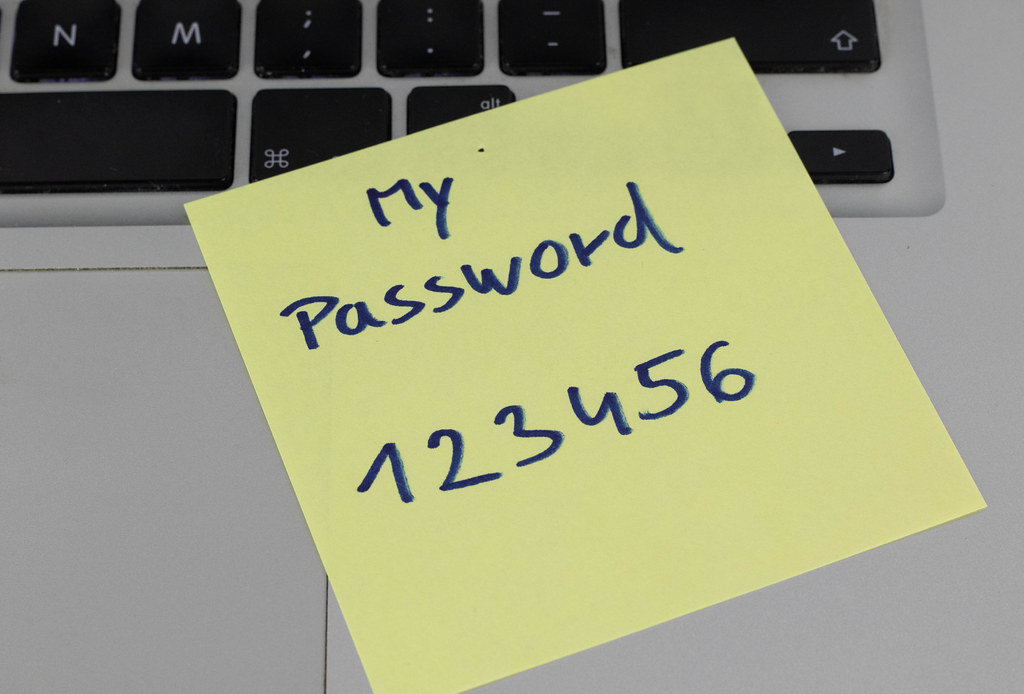 N M ; , : . _ -
⌘ alt
My
Password
123456